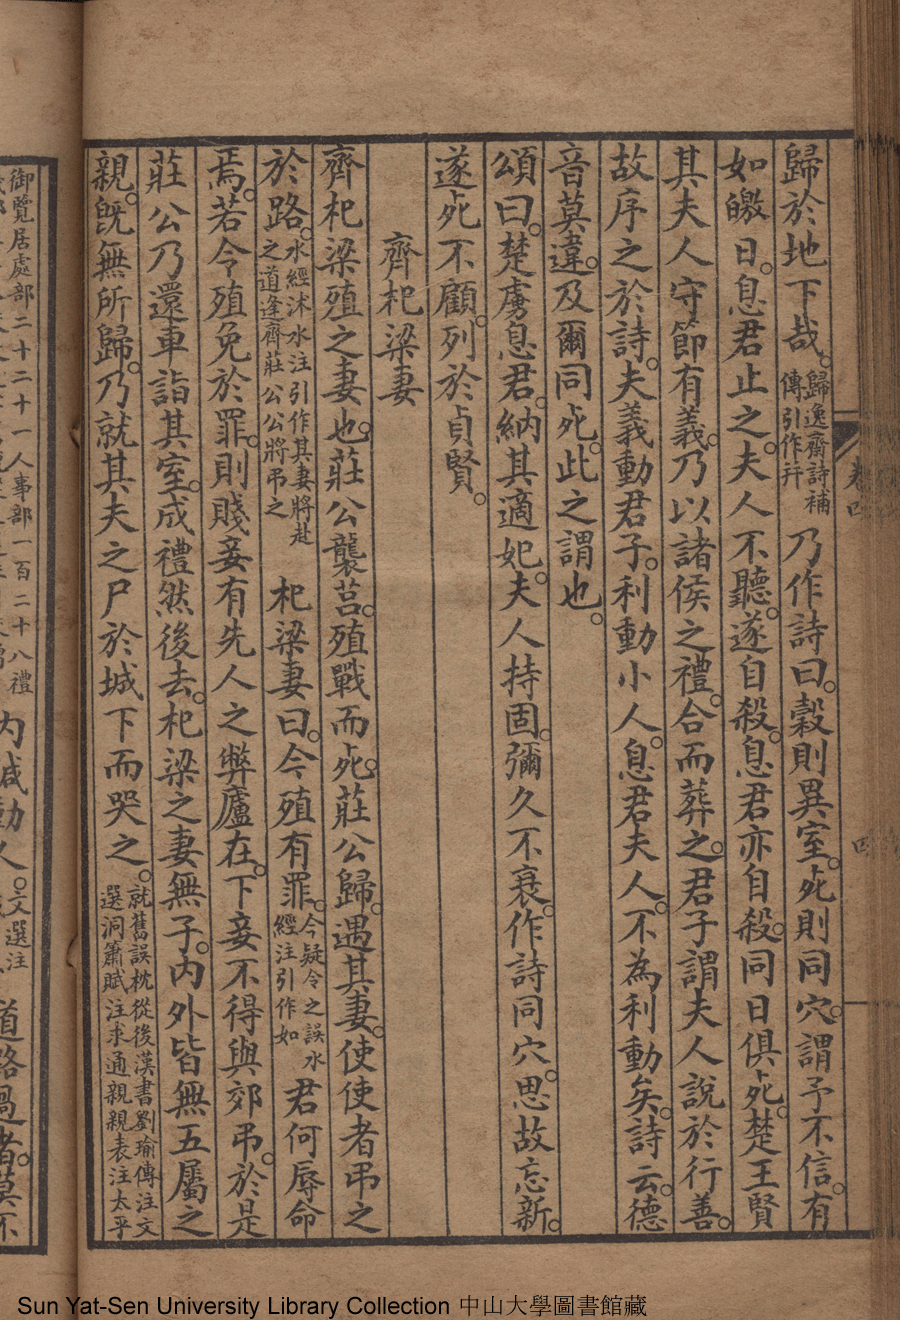 歸於地下哉。歸逸齋詩補傳引作幷乃作詩曰。穀則異室。死則同穴。謂予不信。有
如皦日。息君止之。夫人不聽。遂自殺。息君亦自殺。同日俱死。楚王賢
其夫人守節有義。乃以諸侯之禮。合而葬之。君子謂夫人說於行善。
故序之於詩。夫義動君子。利動小人。息君夫人。不為利動矣。詩云。德
音莫違。及爾同死。此之謂也。
頌曰。楚虜息君。納其適妃。夫人持固。彌久不衰。作詩同穴。思故忘新。
遂死不顧。列於貞賢。
齊杞梁妻
齊杞梁殖之妻也。莊公襲莒。殖戰而死。莊公歸。遇其妻。使使者弔之
於路。水經沭水注引作其妻將赴之道逢齊莊公公將弔之杞梁妻曰。今殖有罪。今疑令之誤水經注引作如君何辱命
焉。若令殖免於罪。則賤妾有先人之弊廬在。下妾不得與郊弔。於是
莊公乃還車詣其室。成禮然後去。杞梁之妻無子。內外皆無五屬之
親。旣無所歸。乃就其夫之尸於城下而哭之。就舊誤枕從後漢書劉瑜傳注文選洞簫賦注求通親親表注太平
御覽居處部二十二十一人事部一百二十八禮
內諴動人。文選注
道路過者。莫不
Sun Yat-Sen University Library Collection 中山大學圖書館藏